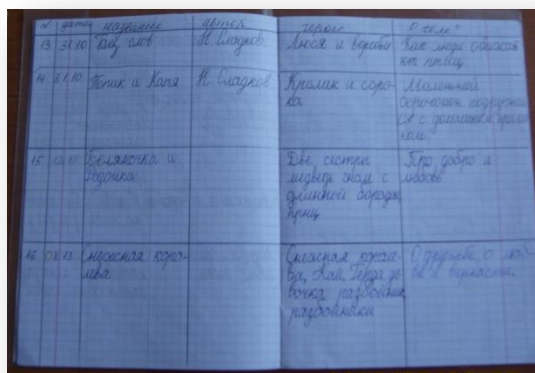 дата название автор герои О чем?
13. 31.10 Без слов Н. Сладков Люди и воробьи Как люди спасают
ют птиц
14. 31.10 Топик и Катя Н. Сладков Кролик и соро-
ка Маленький
сорочонок подружил
ся с домашним кроли
ком
15. Беляночка и
Розочка Две сестры
медведь гном с
длинной бородой
принц Про добро и
любовь
16. Снежная коро-
лева Снежная короле
ва, Кай, Герда де
вочка разбойник
разбойники О дружбе, о люб
ви и верности.